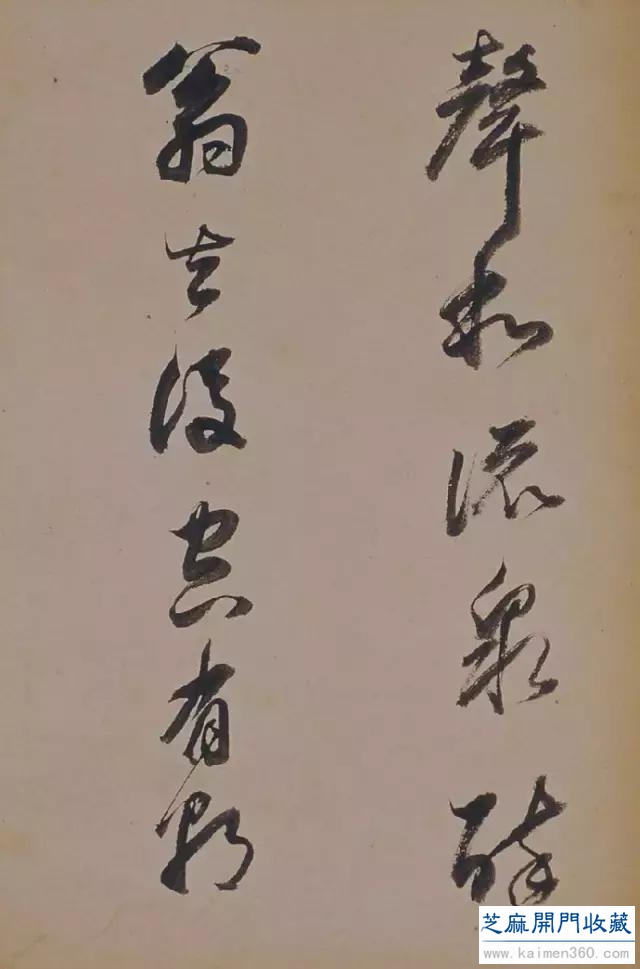 聲和流泉醉
翁去後空有朝
芝麻開門收藏
www.kaimen360.com